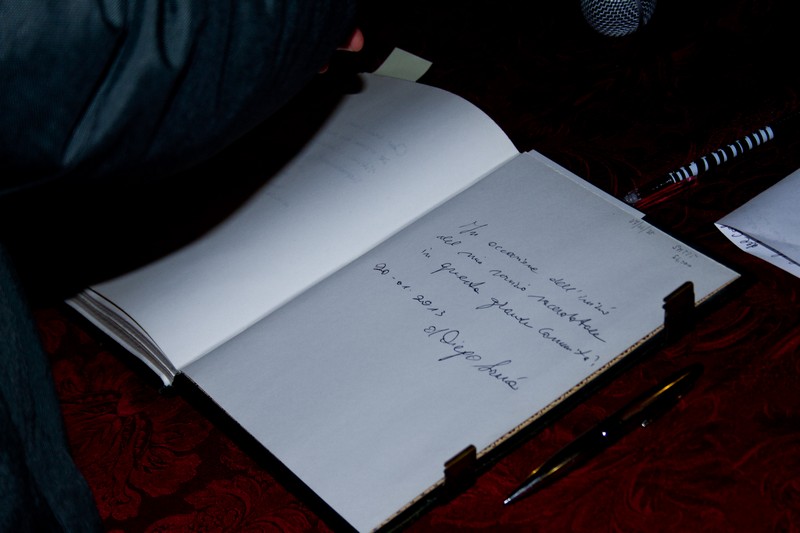 In occasione dell'inizio
del mio servizio sacerdotale
in questa grande Comunità!
20-01-2013
d Diego